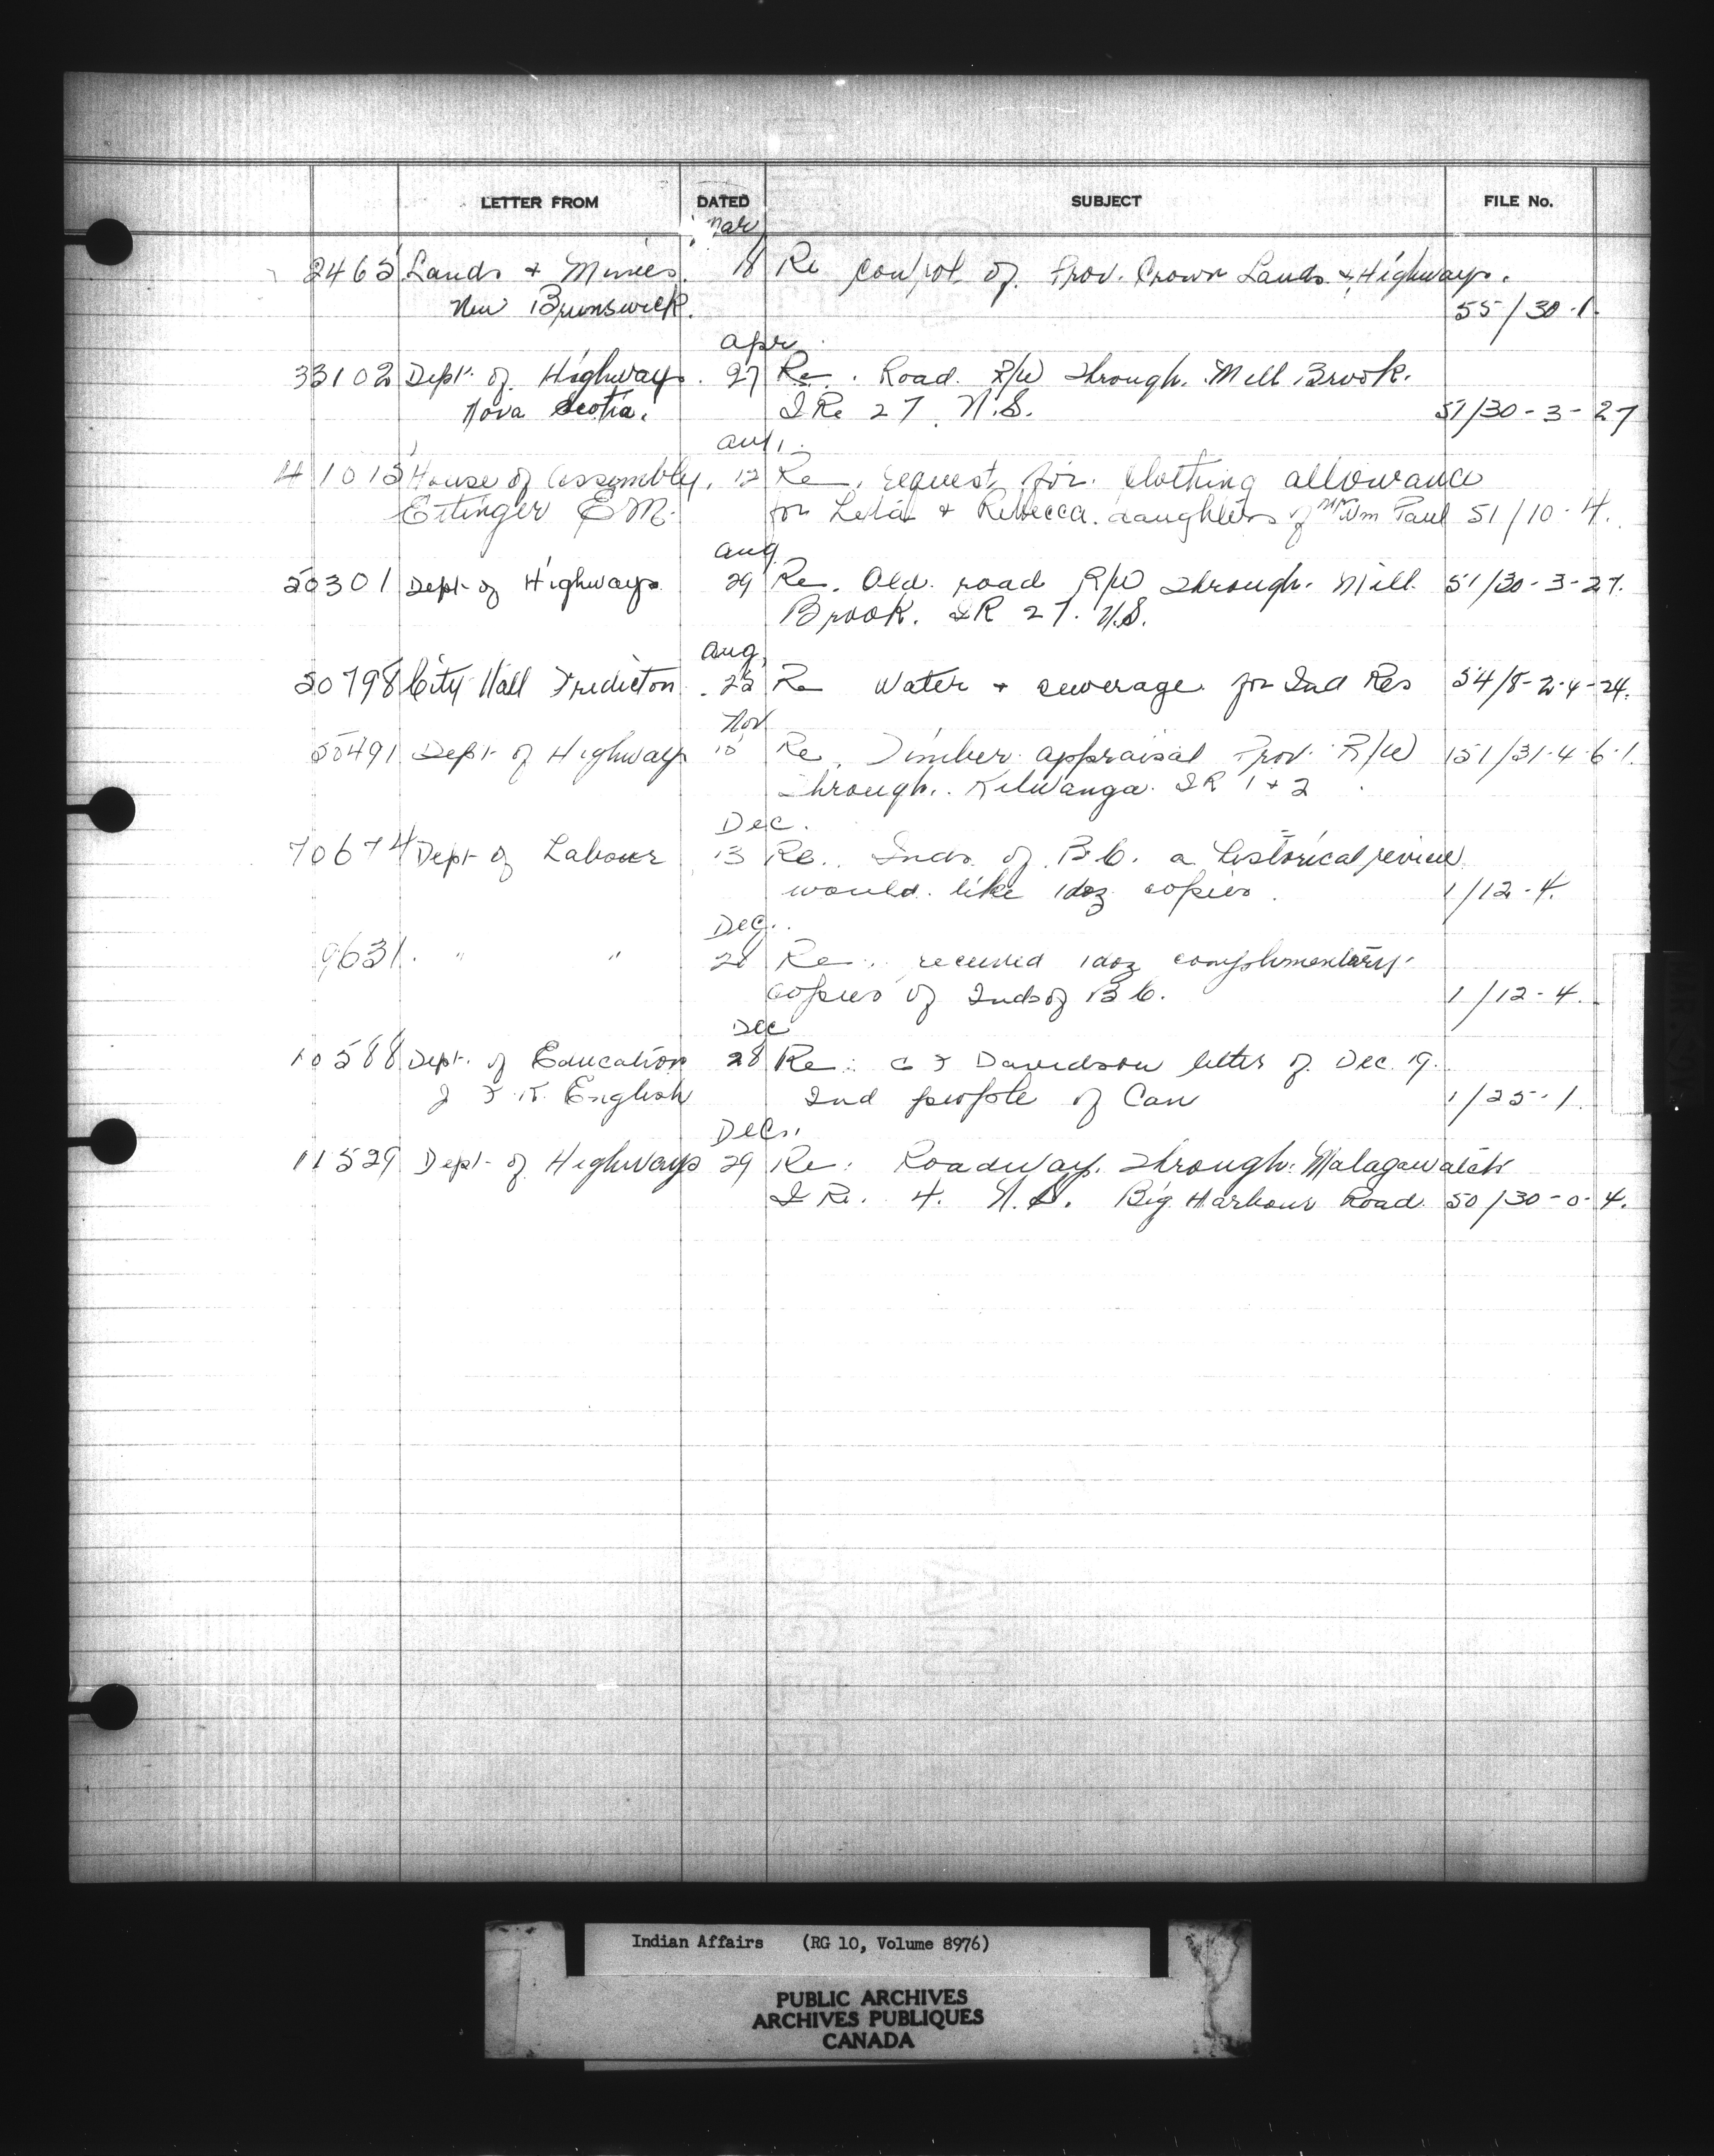 LETTER FROM DATED SUBJECT FILE No.
Mar
2465 Lands & Mines. 18 Re control of Prov. Crown Lands & Highways.
New Brunswick. 55/30-1.
Apr
33102 Dept. of Highways. 27 Re. Road R/W through Mill Brook.
Nova Scotia. I Re 27 N.S. 51/30-3-27
41015 House of Assembly. 12 Re. request for clothing allowance
Ettinger E M. for Lelia & Rebecca daughters of Wm Paul 51/10-4.
Aug
50301 Dept of Highways 29 Re. Old road R/W through Mill 51/30-3-27.
Brook. IR 27. N.S.
Aug.
50798 City Hall Fredicton. 22 Re Water & sewerage for Ind Res 54/8-2-4-24.
Nov
50491 Dept of Highways 15 Re. Timber appraisal Prov. R/W 151/31-4-6-1.
through IR 1 & 2
Dec.
70674 Dept of Labour 13 Re. Inds of B.C. a historical review
would like 1doz copies. 1/12-4.
Dec.
9631. " " 28 Re. received 1doz complimentary
copies of Inds of B C. 1/12-4.
Dec
10588 Dept. of Education 28 Re: G F Davidson letter of Dec 19.
J F K English Ind people of Can 1/25-1.
Dec.
11529 Dept of Highways 29 Re: Roadway through Malagawatch
I Re. 4. N.S. Big Harbour Road 50/30-0-4.
Indian Affairs (RG 10, Volume 8976)
PUBLIC ARCHIVES
ARCHIVES PUBLIQUES
CANADA